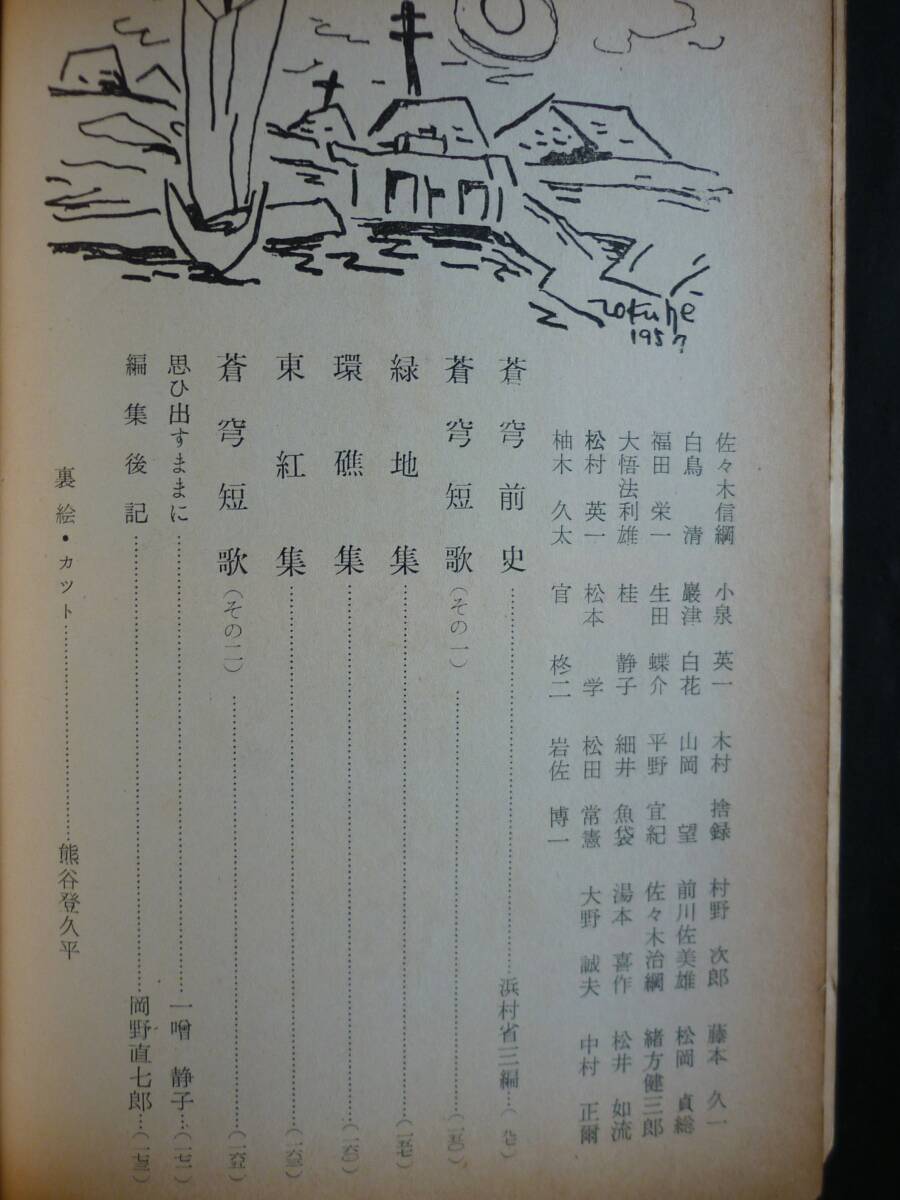 Tokuhe
1957
佐々木信綱 小泉英一 木村捨録 村野次郎 藤本久一
白鳥清 巖津白花 山岡望 前川佐美雄 松岡貞総
福田栄一 生田蝶介 平野宜紀 佐々木治綱 緒方健三郎
大悟法利雄 桂静子 細井魚袋 湯本喜作 松井如流
松村英一 松本学 松田常憲 大野誠夫 中村正爾
柚木久太 官柊二 岩佐博一
蒼穹前史……浜村省三編…(九七)
蒼穹短歌(その一)……(一五〇)
緑地集……(一五七)
環礁集……(一六〇)
東紅集……(一六三)
蒼穹短歌(その二)……(一六五)
思ひ出すままに……一噌静子…(一七一)
編集後記……岡野直七郎…(一七三)
裏絵・カット……熊谷登久平